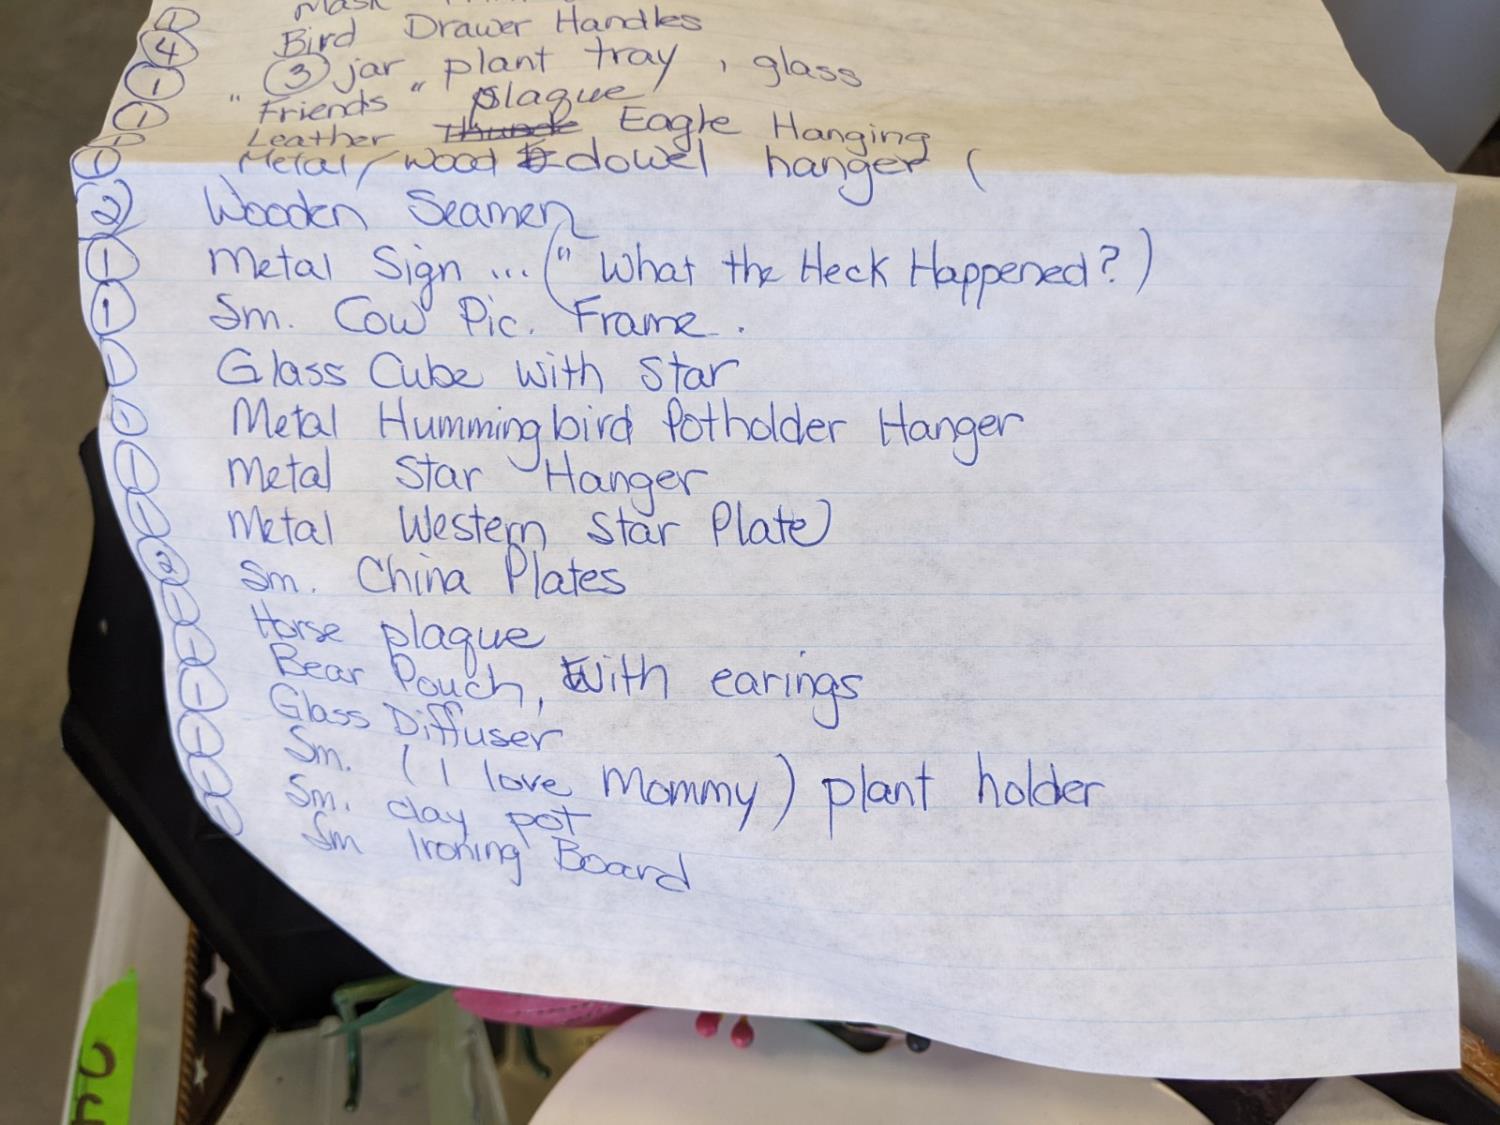 ① Mask
④ Bird Drawer Handles
① ③ jar plant tray, glass
① "Friends" plaque
① Leather Eagle Hanging
① Metal/Wood dowel hanger (
② Wooden Seamen
① Metal Sign ... (" What the Heck Happened?)
① Sm. Cow Pic. Frame.
① Glass Cube with Star
① Metal Hummingbird Potholder Hanger
① Metal Star Hanger
① Metal Western Star Plate
② Sm. China Plates
① Horse plaque
① Bear Pouch, with earings
① Glass Diffuser
① Sm. (I love Mommy) plant holder
① Sm. clay pot
① Sm Ironing Board